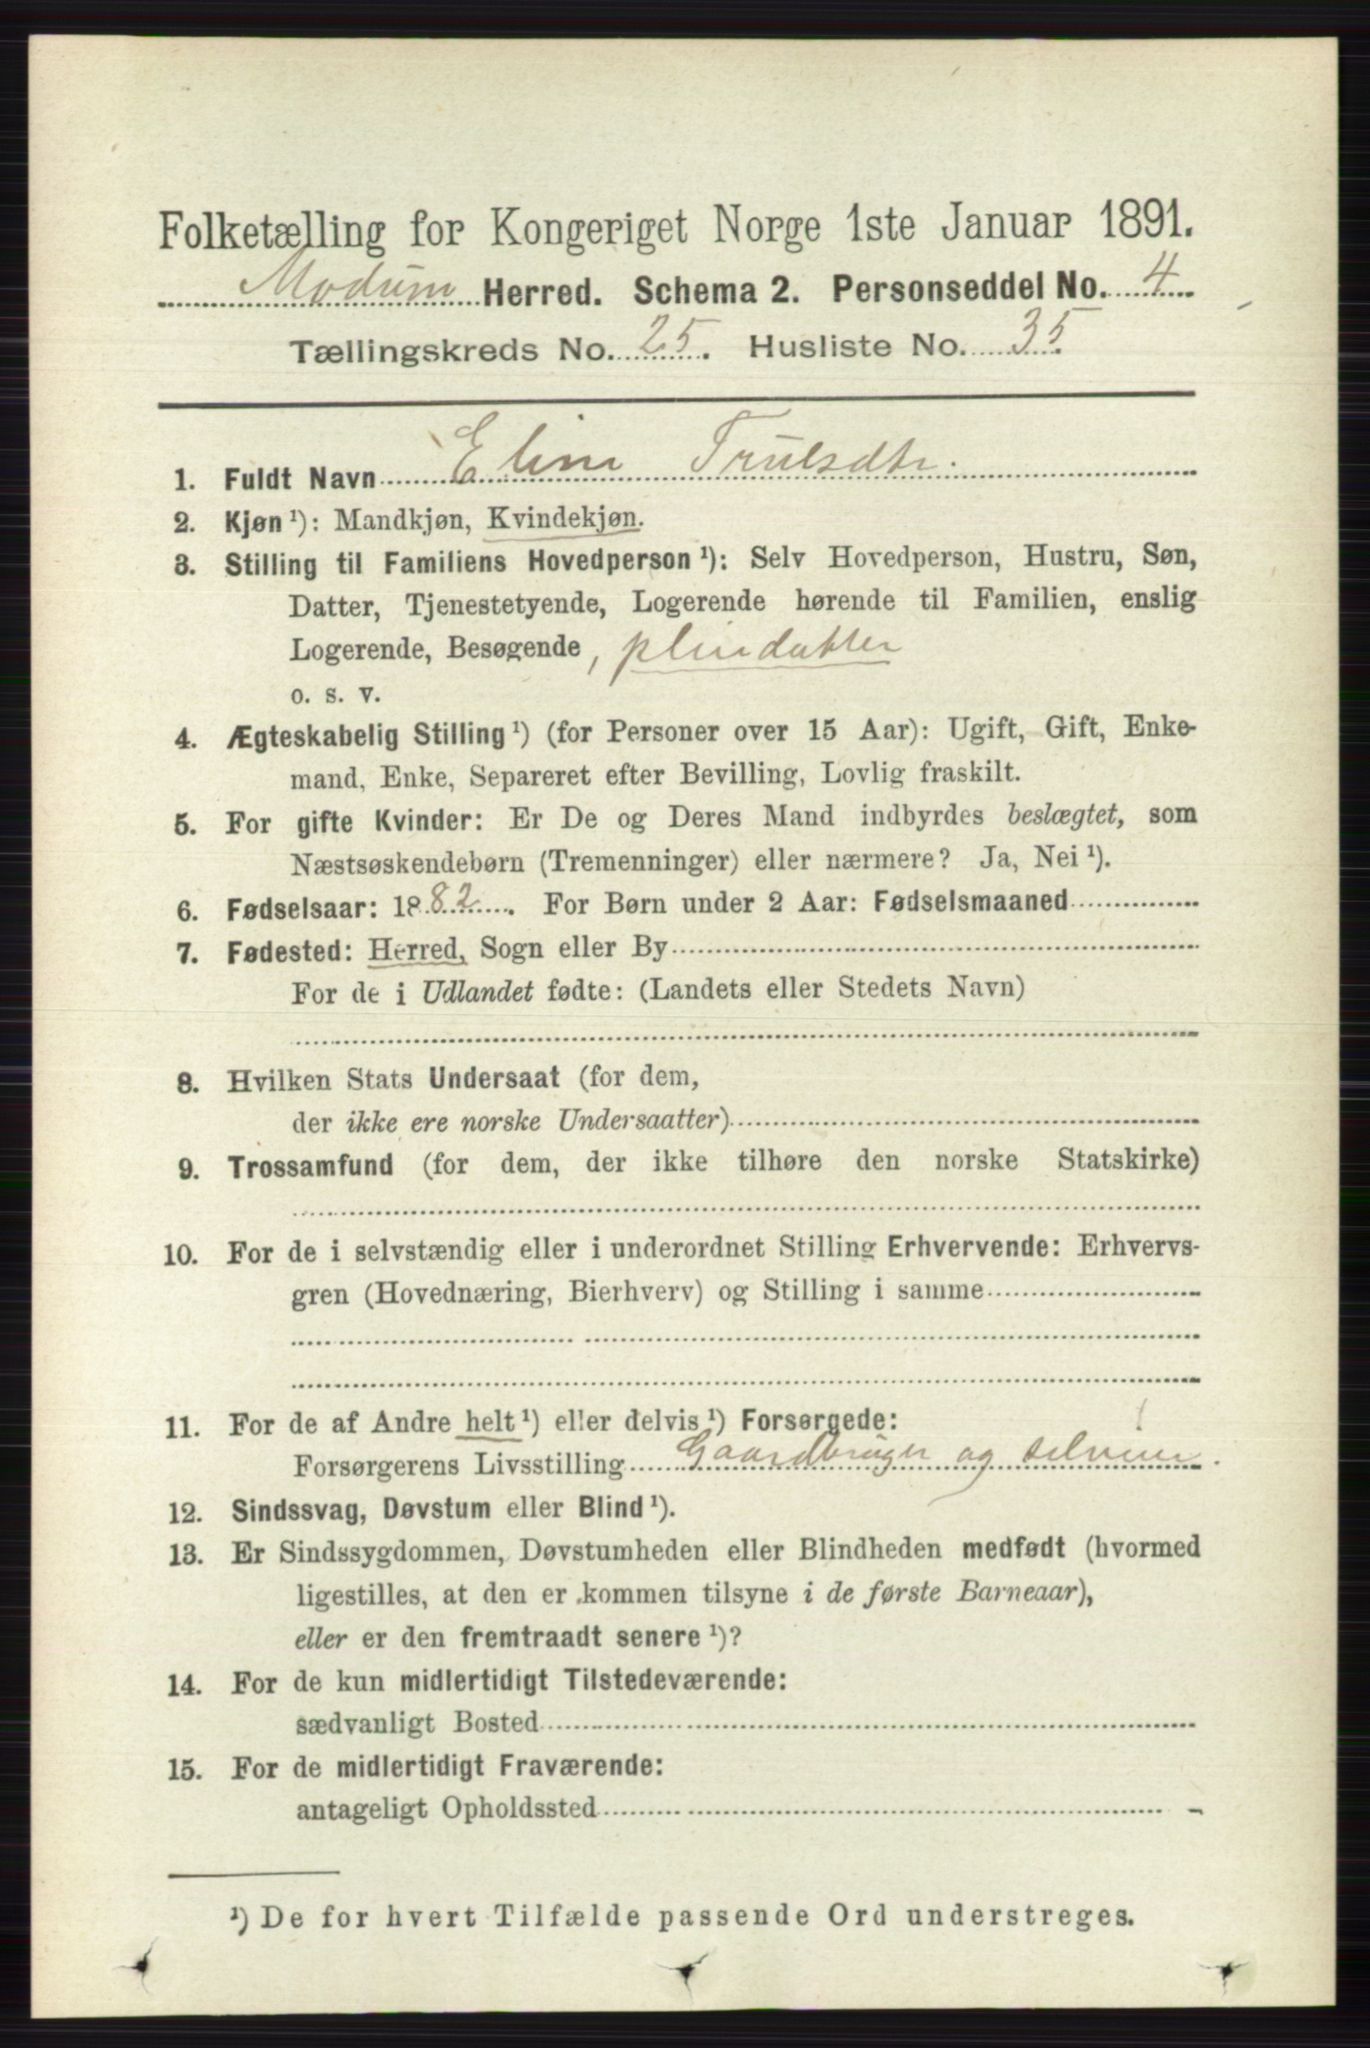 Folketælling for Kongeriget Norge 1ste Januar 1891.
Modum Herred. Schema 2. Personseddel No. 4
Tællingskreds No. 25. Husliste No. 35
1. Fuldt Navn Eline Trulsdtr.
2. Kjøn ¹): Mandkjøn, Kvindekjøn.
3. Stilling til Familiens Hovedperson ¹): Selv Hovedperson, Hustru, Søn,
Datter, Tjenestetyende, Logerende hørende til Familien, enslig
Logerende, Besøgende, pleiedatter
o. s. v.
4. Ægteskabelig Stilling ¹) (for Personer over 15 Aar): Ugift, Gift, Enke-
mand, Enke, Separeret efter Bevilling, Lovlig fraskilt.
5. For gifte Kvinder: Er De og Deres Mand indbyrdes beslægtet, som
Næstsøskendebørn (Tremenninger) eller nærmere? Ja, Nei ¹).
6. Fødselsaar: 1882. For Børn under 2 Aar: Fødselsmaaned
7. Fødested: Herred, Sogn eller By
For de i Udlandet fødte: (Landets eller Stedets Navn)
8. Hvilken Stats Undersaat (for dem,
der ikke ere norske Undersaatter)
9. Trossamfund (for dem, der ikke tilhøre den norske Statskirke)
10. For de i selvstændig eller i underordnet Stilling Erhvervende: Erhvervs-
gren (Hovednæring, Bierhverv) og Stilling i samme
11. For de af Andre helt ¹) eller delvis ¹) Forsørgede:
Forsørgerens Livsstilling Gaardbruger og selveier.
12. Sindssvag, Døvstum eller Blind ¹).
13. Er Sindssygdommen, Døvstumheden eller Blindheden medfødt (hvormed
ligestilles, at den er kommen tilsyne i de første Barneaar),
eller er den fremtraadt senere ¹)?
14. For de kun midlertidigt Tilstedeværende:
sædvanligt Bosted
15. For de midlertidigt Fraværende:
antageligt Opholdssted
¹) De for hvert Tilfælde passende Ord understreges.